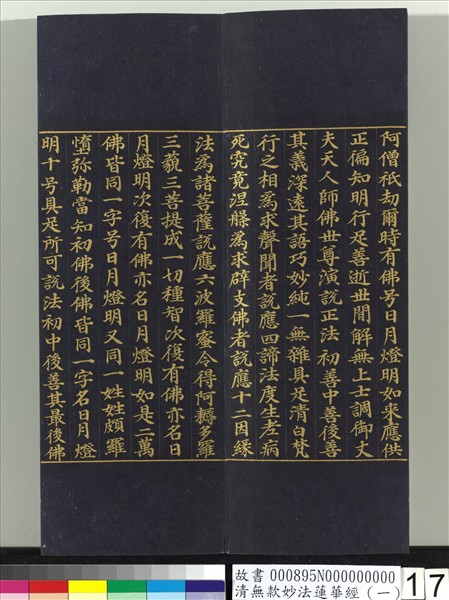 阿僧祇劫爾時有佛号日月燈明如来應供
正徧知明行足善逝世間解無上士調御丈
夫天人師佛世尊演說正法初善中善後善
其義深遠其語巧妙純一無雜具足清白梵
行之相為求聲聞者說應四諦法度生老病
死究竟涅槃為求辟支佛者說應十二因緣
法為諸菩薩說應六波羅蜜令得阿耨多羅
三藐三菩提成一切種智次復有佛亦名日
月燈明次復有佛亦名日月燈明如是二萬
佛皆同一字号日月燈明又同一姓姓頗羅
墮弥勒當知初佛後佛皆同一字名日月燈
明十号具足所可說法初中後善其最後佛
故書 000895N000000000
清無款妙法蓮華經(一)
17